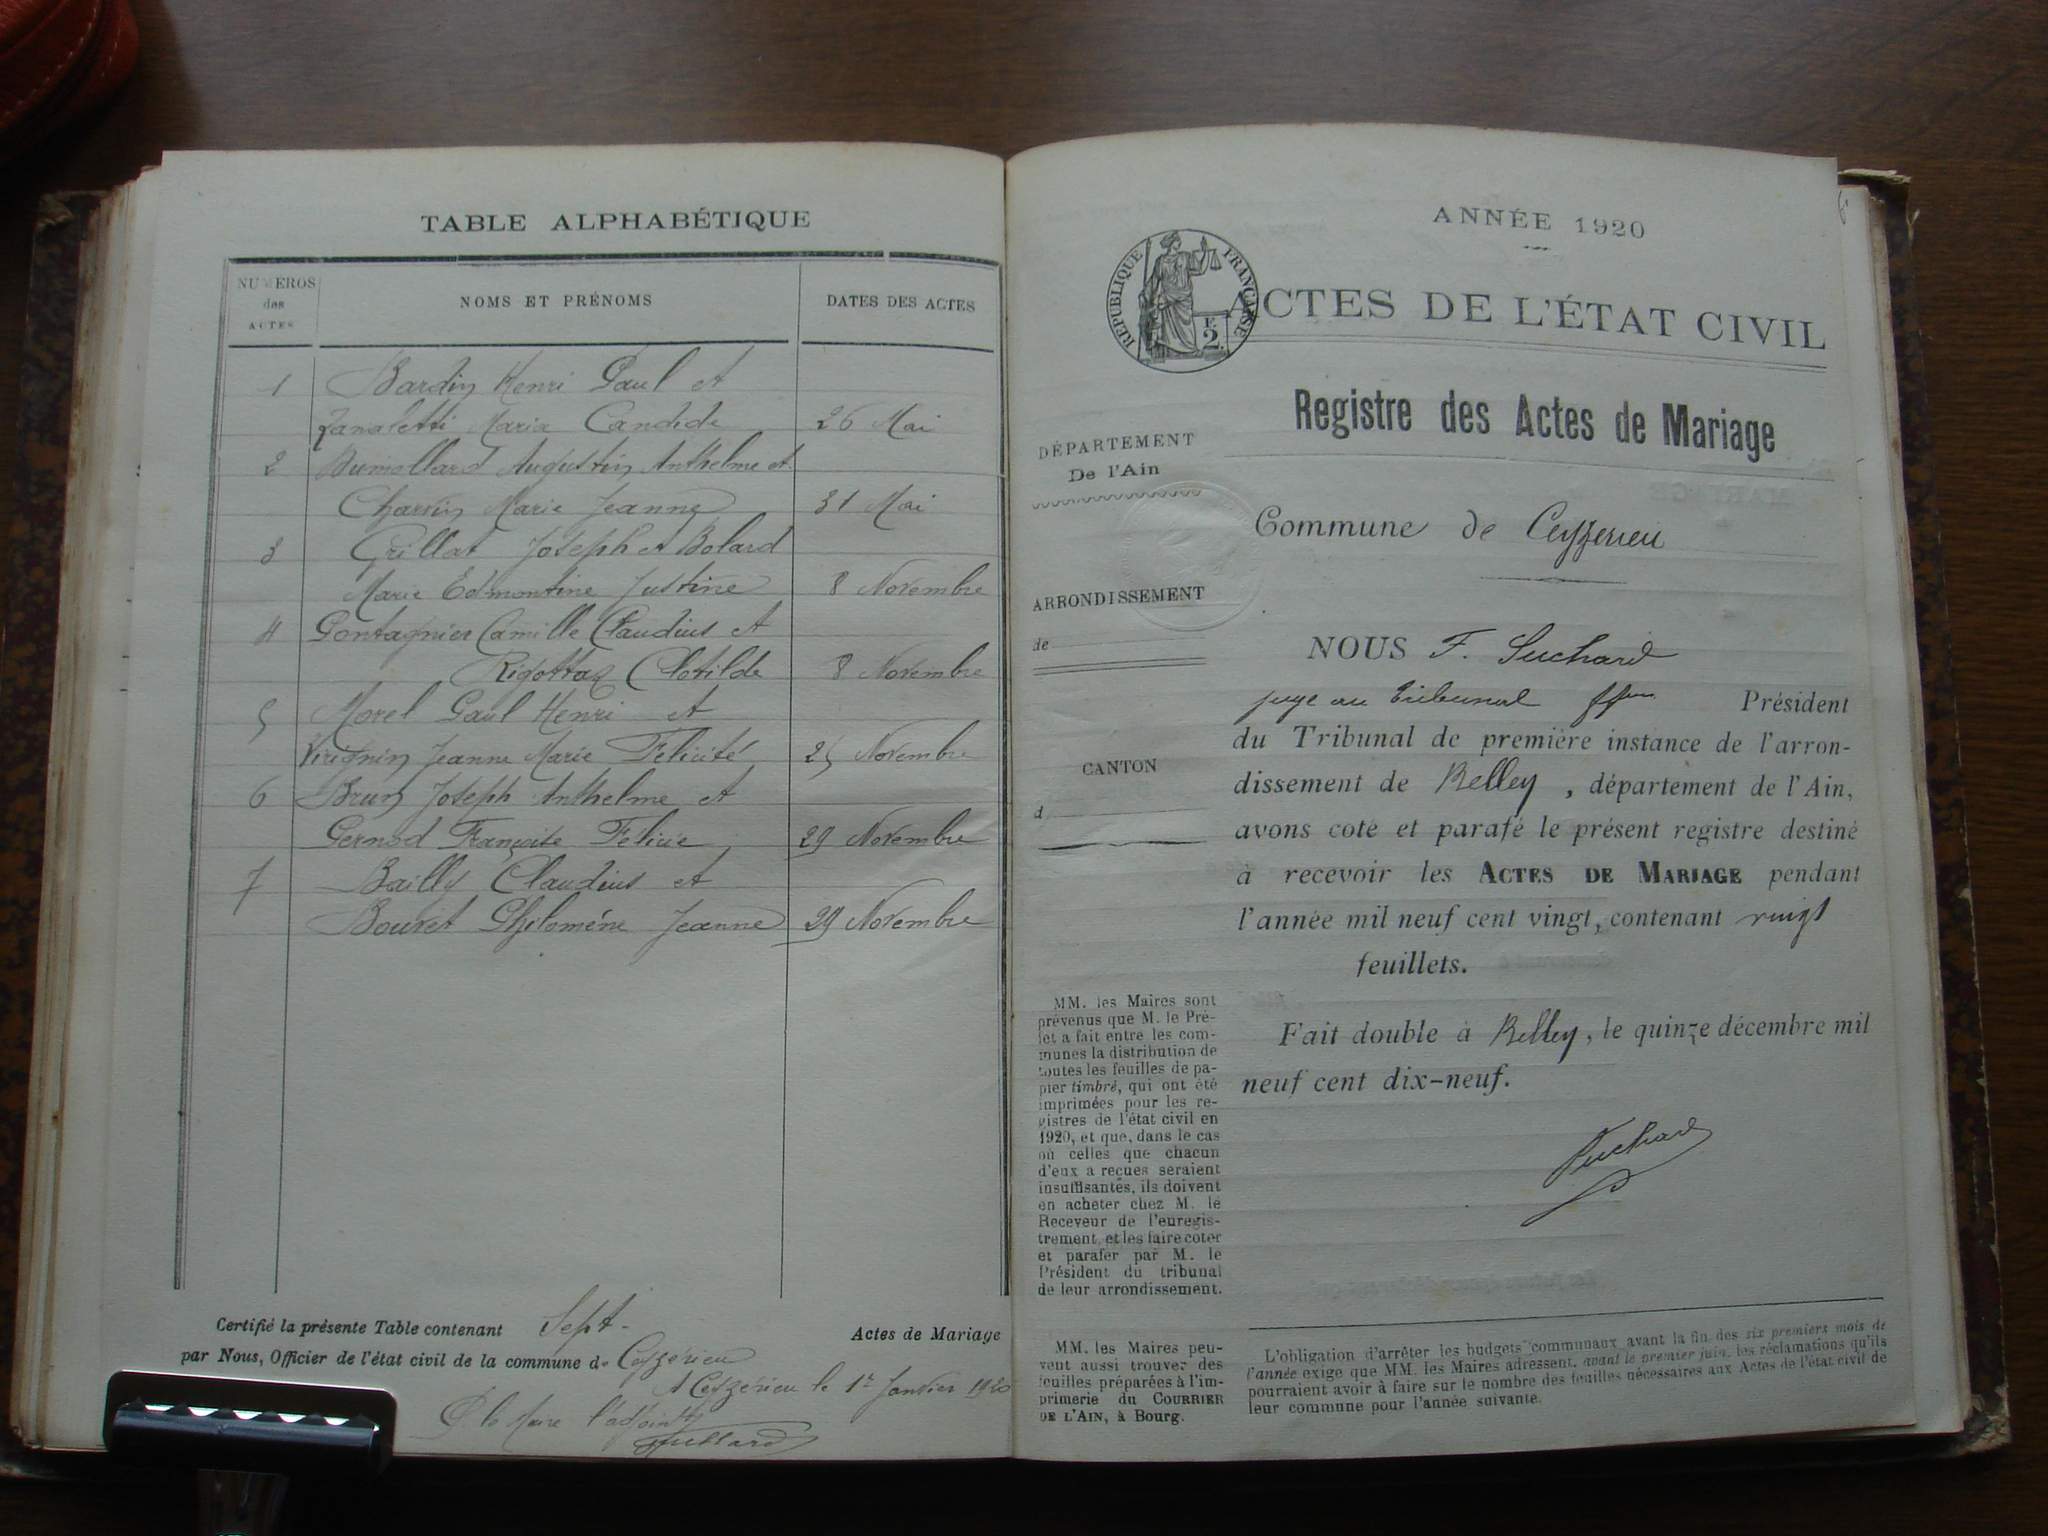 TABLE ALPHABÉTIQUE
NUMÉROS des ACTES
NOMS ET PRÉNOMS
DATES DES ACTES
1 Bardin Henri Paul et
Zanaletti Maria Candide 26 Mai
2 Dumollard Augustin Anthelme et
Charvin Marie Jeanne 31 Mai
3 Grillat Joseph et Bolard
Marie Edmontine Justine 8 Novembre
4 Pontagnier Camille Claudius et
Rigottaz Clotilde 8 Novembre
5 Morel Paul Henri et
Virignin Jeanne Marie Félicité 25 Novembre
6 Brun Joseph Anthelme et
Pernod Françoise Félicie 29 Novembre
7 Bailly Claudius et
Bouvet Philomène Jeanne 29 Novembre
Certifié la présente Table contenant Sept Actes de Mariage
par Nous, Officier de l'état civil de la commune de Ceyzérieu
A Ceyzérieu le 1er Janvier 1920
P. le Maire l'adjoint
ANNÉE 1920
RÉPUBLIQUE FRANÇAISE
2 F.
ACTES DE L'ÉTAT CIVIL
Registre des Actes de Mariage
DÉPARTEMENT
De l'Ain
Commune de Ceyzerieu
ARRONDISSEMENT
de
CANTON
d
NOUS F. Suchard
juge au tribunal ffon Président
du Tribunal de première instance de l'arron-
dissement de Belley, département de l'Ain,
avons coté et parafé le présent registre destiné
à recevoir les ACTES DE MARIAGE pendant
l'année mil neuf cent vingt, contenant vingt
feuillets.
Fait double à Belley, le quinze décembre mil
neuf cent dix-neuf.
Suchard
MM. les Maires sont
prévenus que M. le Pré-
fet a fait entre les com-
munes la distribution de
toutes les feuilles de pa-
pier timbré, qui ont été
imprimées pour les re-
gistres de l'état civil en
1920, et que, dans le cas
où celles que chacun
d'eux a reçues seraient
insuffisantes, ils doivent
en acheter chez M. le
Receveur de l'enregis-
trement et les faire coter
et parafer par M. le
Président du tribunal
de leur arrondissement.
MM. les Maires peu-
vent aussi trouver des
feuilles préparées à l'im-
primerie du COURRIER
DE L'AIN, à Bourg.
L'obligation d'arrêter les budgets communaux avant la fin des six premiers mois de
l'année exige que MM. les Maires adressent, avant le premier juin, les réclamations qu'ils
pourraient avoir à faire sur le nombre des feuilles nécessaires aux Actes de l'état civil de
leur commune pour l'année suivante.